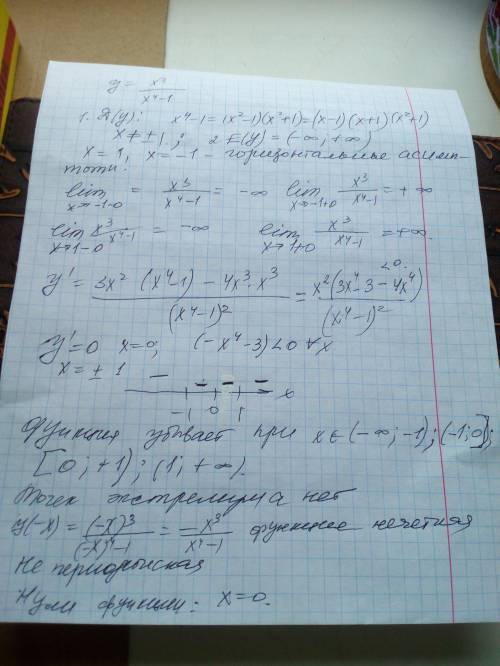 y = x³/(x⁴-1)
1. D(y): x⁴-1 = (x²-1)(x²+1) = (x-1)(x+1)(x²+1)
x ≠ ±1; 2 E(y) = (-∞; +∞)
x = 1, x = -1 - горизонтальные асимп-
тоты.
lim x→-1-0 = x³/(x⁴-1) = -∞ lim x→-1+0 x³/(x⁴-1) = +∞
lim x→1-0 x³/(x⁴-1) = -∞ lim x→1+0 x³/(x⁴-1) = +∞.
y' = (3x² (x⁴-1) - 4x³·x³)/(x⁴-1)² = x²(3x⁴-3-4x⁴)/(x⁴-1)² <0
y'=0 x=0; (-x⁴-3)<0 ∀x
x = ±1 - - - - x
-1 0 1
Функция убывает при x∈(-∞;-1); (-1;0];
[0;+1); (1;+∞).
Точек экстремума нет
y(-x) = (-x)³/((-x)⁴-1) = -x³/(x⁴-1) функция нечетная
Не периодическая
Нули функции: x=0.